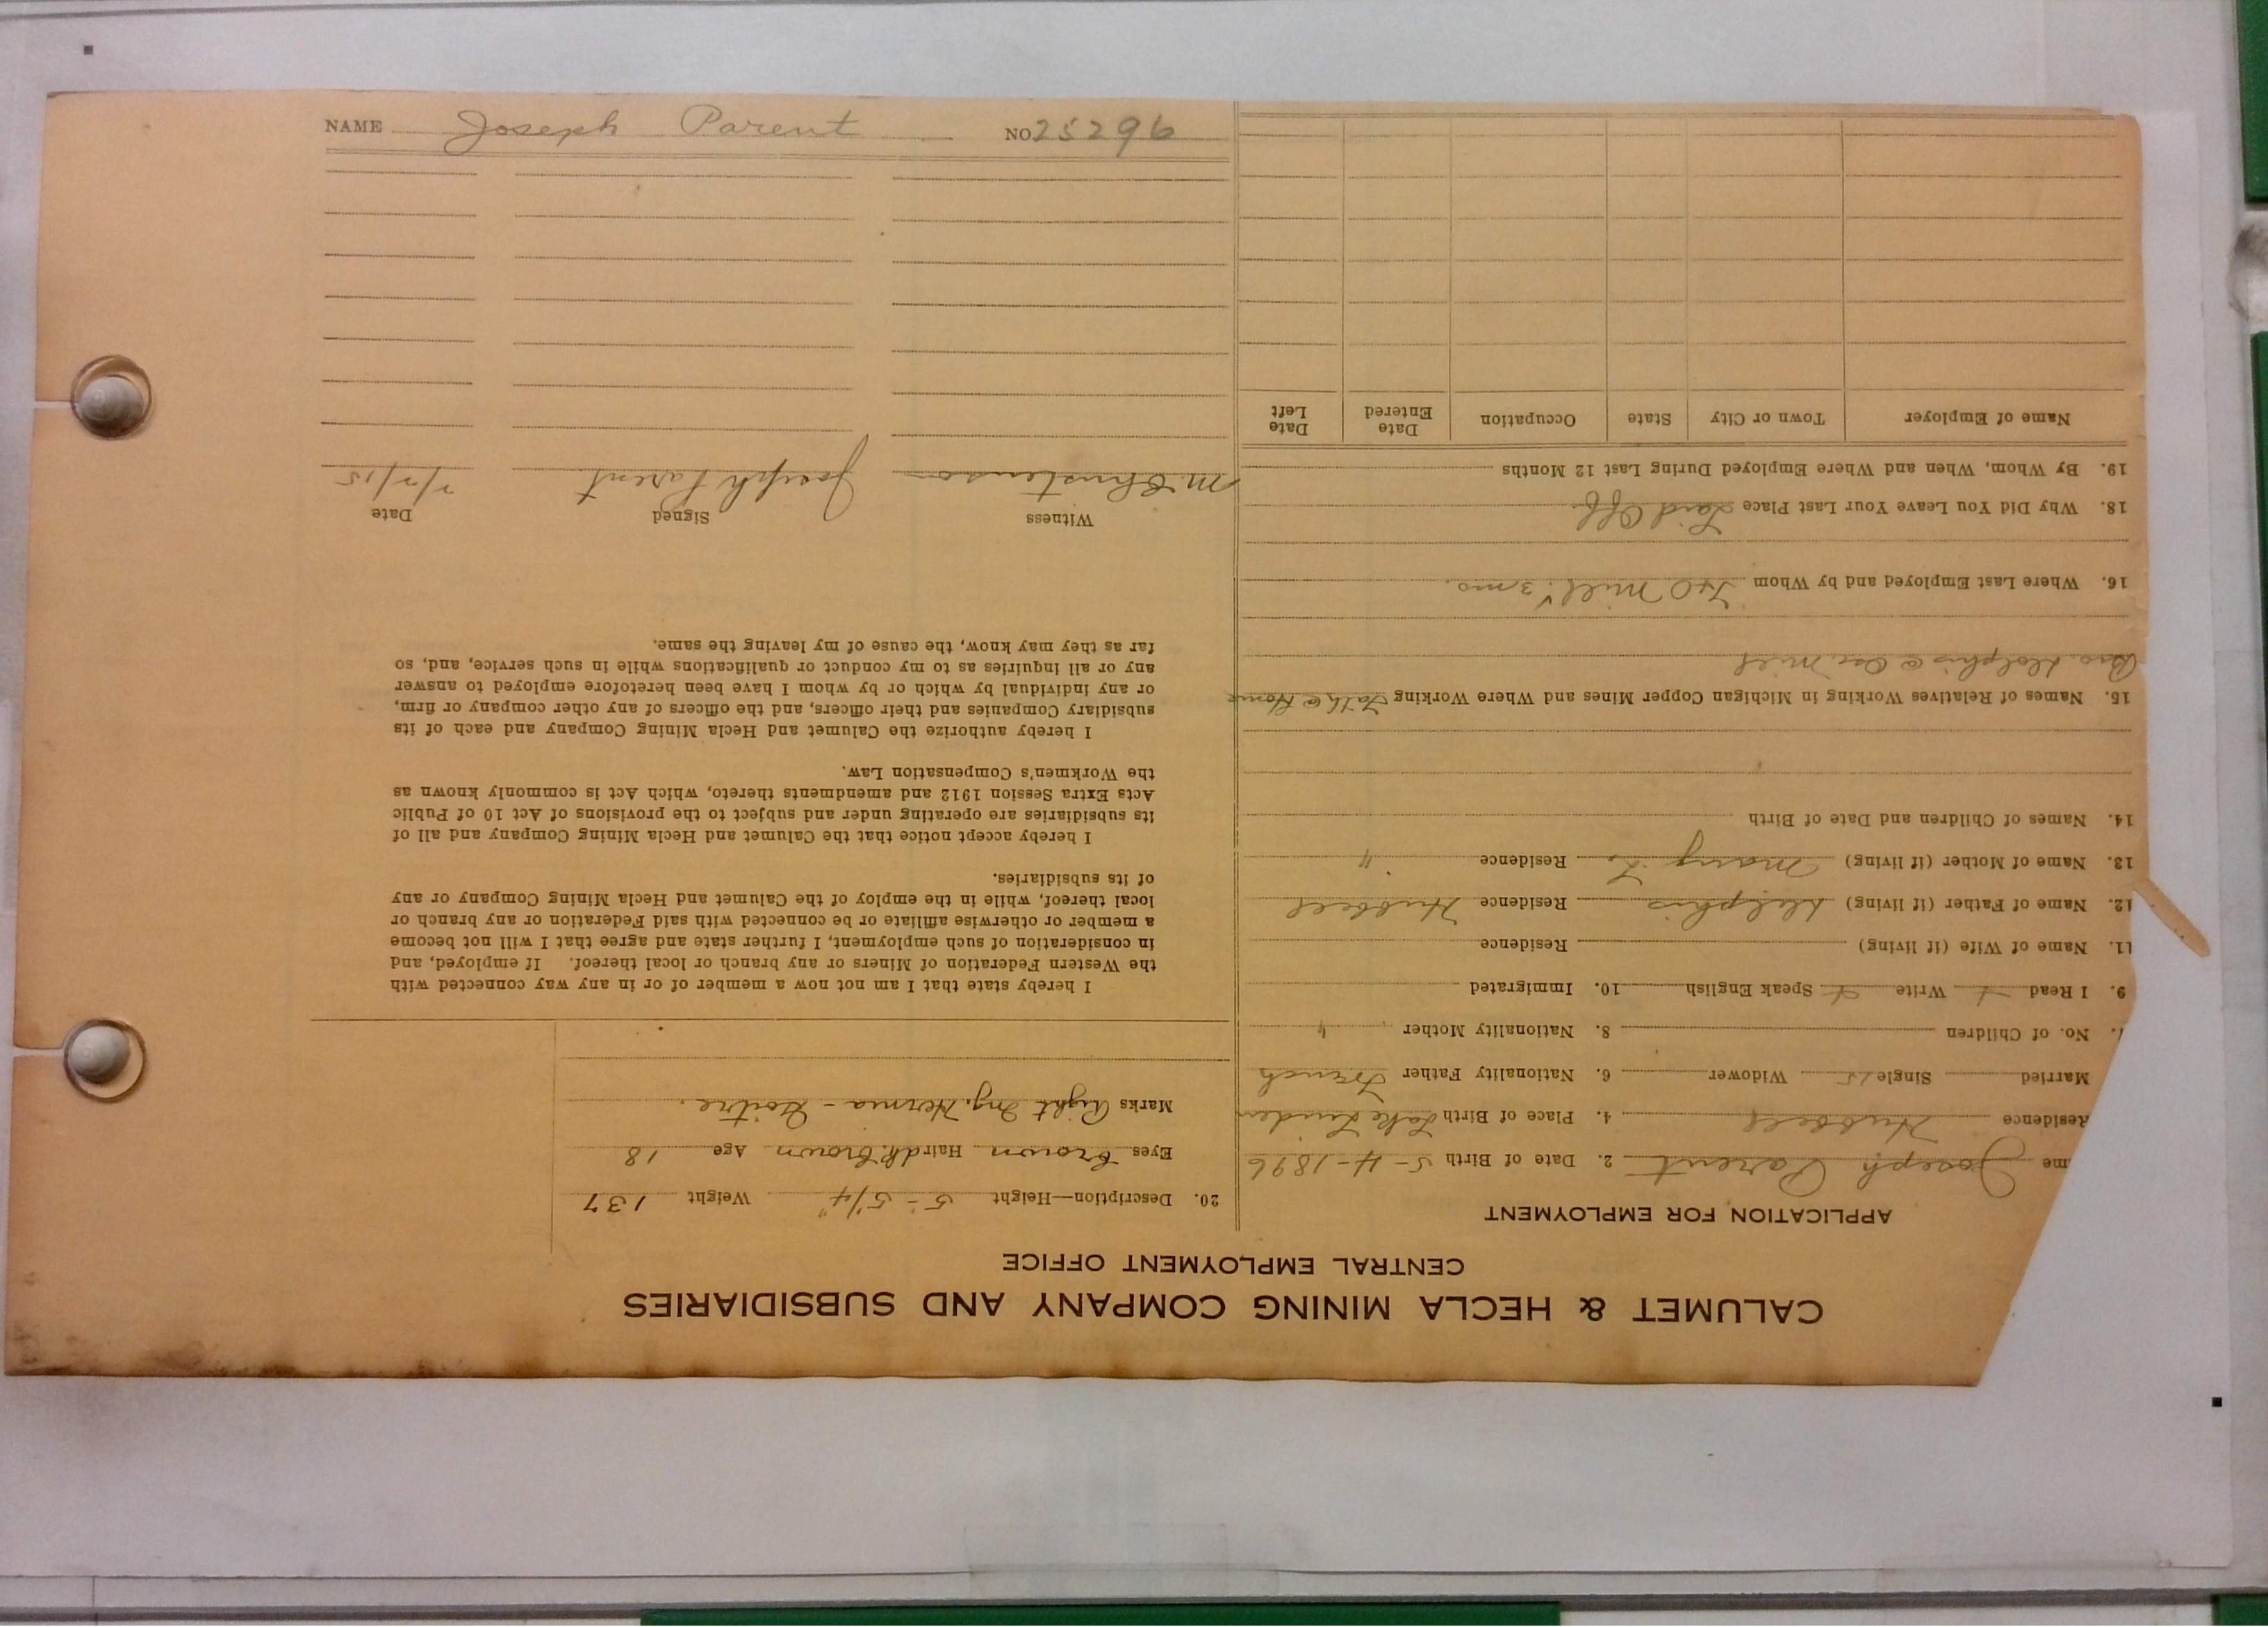 CALUMET & HECLA MINING COMPANY AND SUBSIDIARIES
CENTRAL EMPLOYMENT OFFICE
APPLICATION FOR EMPLOYMENT
me Joseph Parent 2. Date of Birth 5-4-1896
Residence Hubbell 4. Place of Birth Lake Linden
Married Single Widower 6. Nationality Father French
No. of Children 8. Nationality Mother "
9. I Read Write Speak English 10. Immigrated
11. Name of Wife (if living) Residence
12. Name of Father (if living) Delphis Residence Hubbell
13. Name of Mother (if living) Mary L. Residence "
14. Names of Children and Date of Birth
15. Names of Relatives Working in Michigan Copper Mines and Where Working Fath @ Home
Bro. Delphis @ Osc. Mill
16. Where Last Employed and by Whom Mill 3 mo.
18. Why Did You Leave Your Last Place Laid Off
19. By Whom, When and Where Employed During Last 12 Months
Name of Employer Town or City State Occupation Date Entered Date Left
20. Description—Height 5'-5 1/4" Weight 137
Eyes Brown Hair dk. brown Age 18
Marks Right Ing. Hernia - Goitre.
I hereby state that I am not now a member of or in any way connected with
the Western Federation of Miners or any branch or local thereof. If employed, and
in consideration of such employment, I further state and agree that I will not become
a member or otherwise affiliate or be connected with said Federation or any branch or
local thereof, while in the employ of the Calumet and Hecla Mining Company or any
of its subsidiaries.
I hereby accept notice that the Calumet and Hecla Mining Company and all of
its subsidiaries are operating under and subject to the provisions of Act 10 of Public
Acts Extra Session 1912 and amendments thereto, which Act is commonly known as
the Workmen's Compensation Law.
I hereby authorize the Calumet and Hecla Mining Company and each of its
subsidiary Companies and their officers, and the officers of any other company or firm,
or any individual by which or by whom I have been heretofore employed to answer
any or all inquiries as to my conduct or qualifications while in such service, and, so
far as they may know, the cause of my leaving the same.
Witness Signed Date
M. Christenson Joseph Parent 7/7/15
NAME Joseph Parent NO. 25296